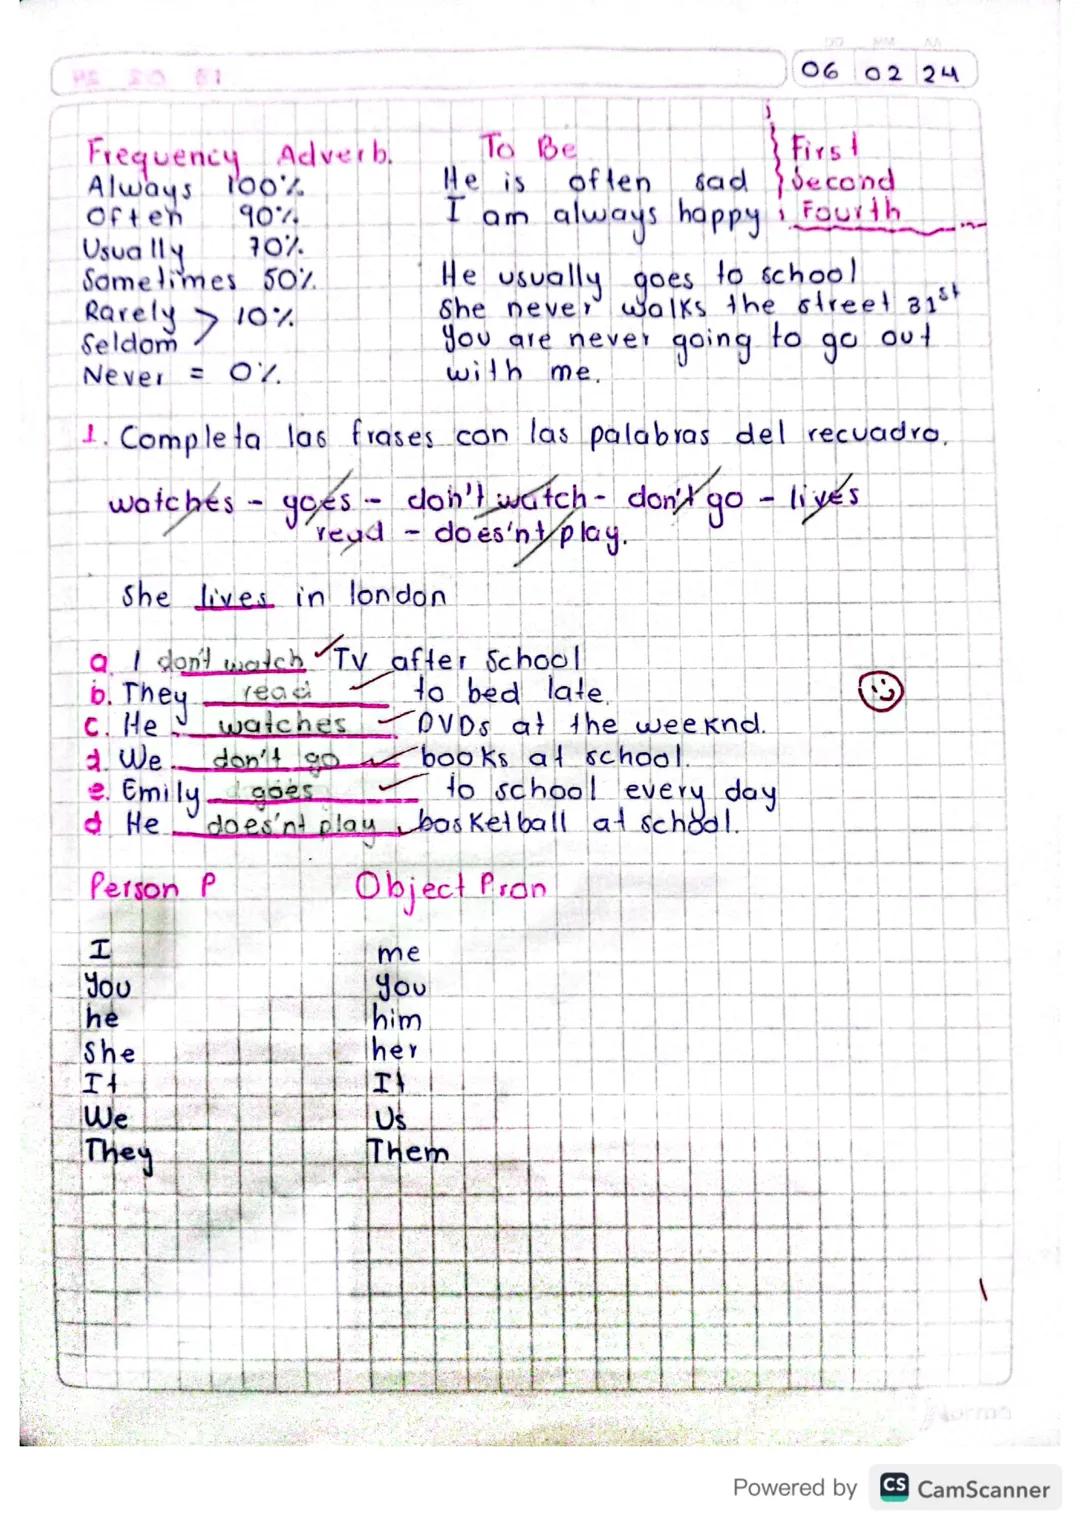 DD MM AA
06 02 24
Frequency Adverb.
Always 100%
Often 90%
Usually 70%
Sometimes 50%
Rarely > 10%
Seldom
Never = 0%
To Be
He is often sad
I am always happy
First
Second
Fourth
He usually goes to school
She never walks the street 31st
You are never going to go out
with me.
1. Completa las frases con las palabras del recuadro.
watches - goes - don't watch - don't go - lives
read - does'nt play.
She lives in london
a. I don't watch TV after School
b. They read to bed late.
c. He watches DVDs at the weeknd.
d. We don't go books at school.
e. Emily goes to school every day
d He does'nt play basketball at school.
Person P Object Pron
I me
You you
he him
She her
It It
We Us
They Them
Norma
Powered by CS CamScanner